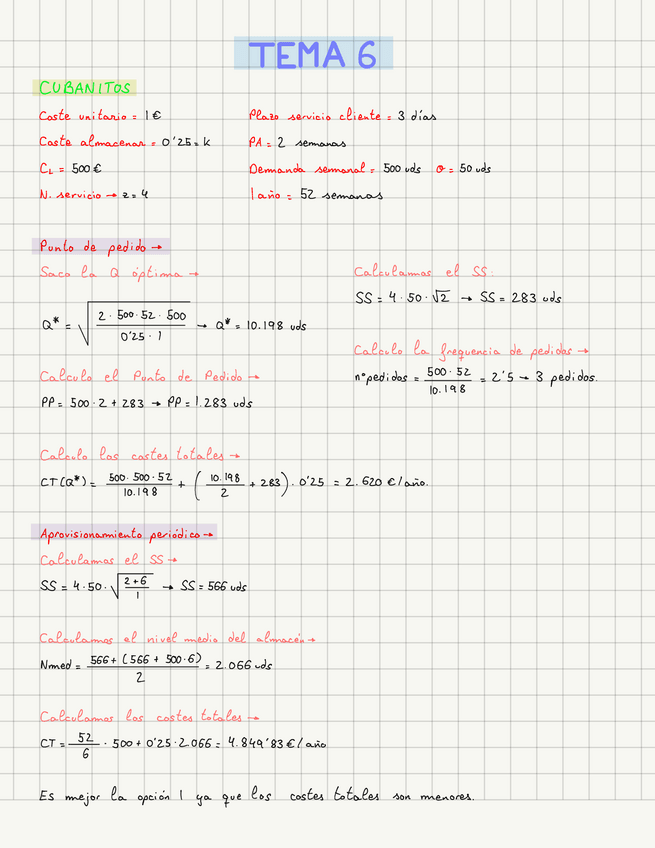 TEMA 6
CUBANITOS
Coste unitario = 1 €
Plazo servicio cliente = 3 días
Coste almacenar = 0'25 = k
PA = 2 semanas
CL = 500 €
Demanda semanal = 500 uds σ = 50 uds
N. servicio → z = 4
1 año = 52 semanas
Punto de pedido →
Saco la Q óptima →
Q* = √(2 · 500 · 52 · 500 / 0'25 · 1) → Q* = 10.198 uds
Calculamos el SS:
SS = 4 · 50 · √2 → SS = 283 uds
Calculo el Punto de Pedido →
PP = 500 · 2 + 283 → PP = 1.283 uds
Calculo la frequencia de pedidos →
nºpedidos = 500 · 52 / 10.198 = 2'5 → 3 pedidos.
Calculo los costes totales →
CT(Q*) = 500 · 500 · 52 / 10.198 + (10.198 / 2 + 283) · 0'25 = 2.620 €/año.
Aprovisionamiento periódico →
Calculamos el SS →
SS = 4 · 50 · √(2+6 / 1) → SS = 566 uds
Calculamos el nivel medio del almacén →
Nmed = 566 + (566 + 500 · 6) / 2 = 2.066 uds
Calculamos los costes totales →
CT = 52 / 6 · 500 + 0'25 · 2.066 = 4.849'83 €/año
Es mejor la opción 1 ya que los costes totales son menores.